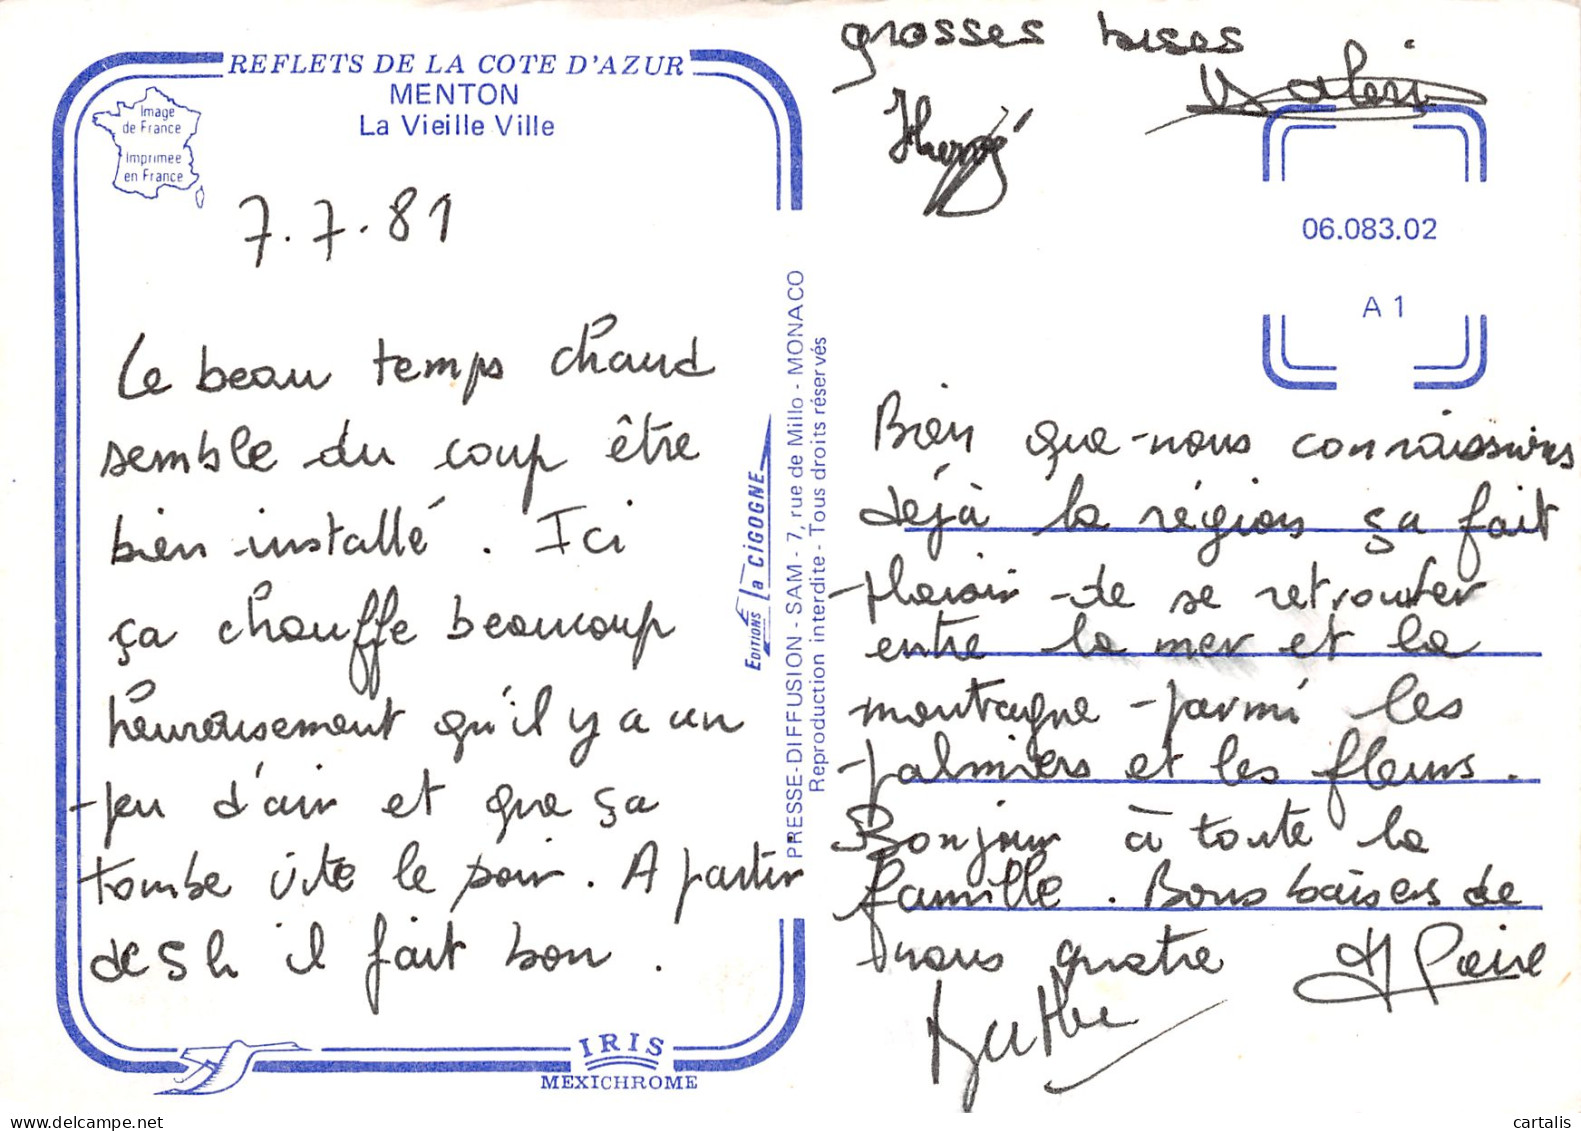 REFLETS DE LA COTE D'AZUR
MENTON
La Vieille Ville
Image
de France
Imprimée
en France
7.7.81
Le beau temps chaud
semble du coup être
bien installé. Ici
ça chauffe beaucoup
heureusement qu'il y a un
peu d'air et que ça
tombe vite le soir. A partir
de 5h il fait bon.
IRIS
MEXICHROME
EDITIONS la CIGOGNE
PRESSE-DIFFUSION - SAM - 7, rue de Millo - MONACO
Reproduction interdite - Tous droits réservés
grosses bises
Hervé
06.083.02
A 1
Bien que nous connaissions
déjà la région ça fait
plaisir de se retrouver
entre la mer et la
montagne parmi les
palmiers et les fleurs.
Bonjour à toute la
famille. Bons baisers de
nous quatre
cartalis